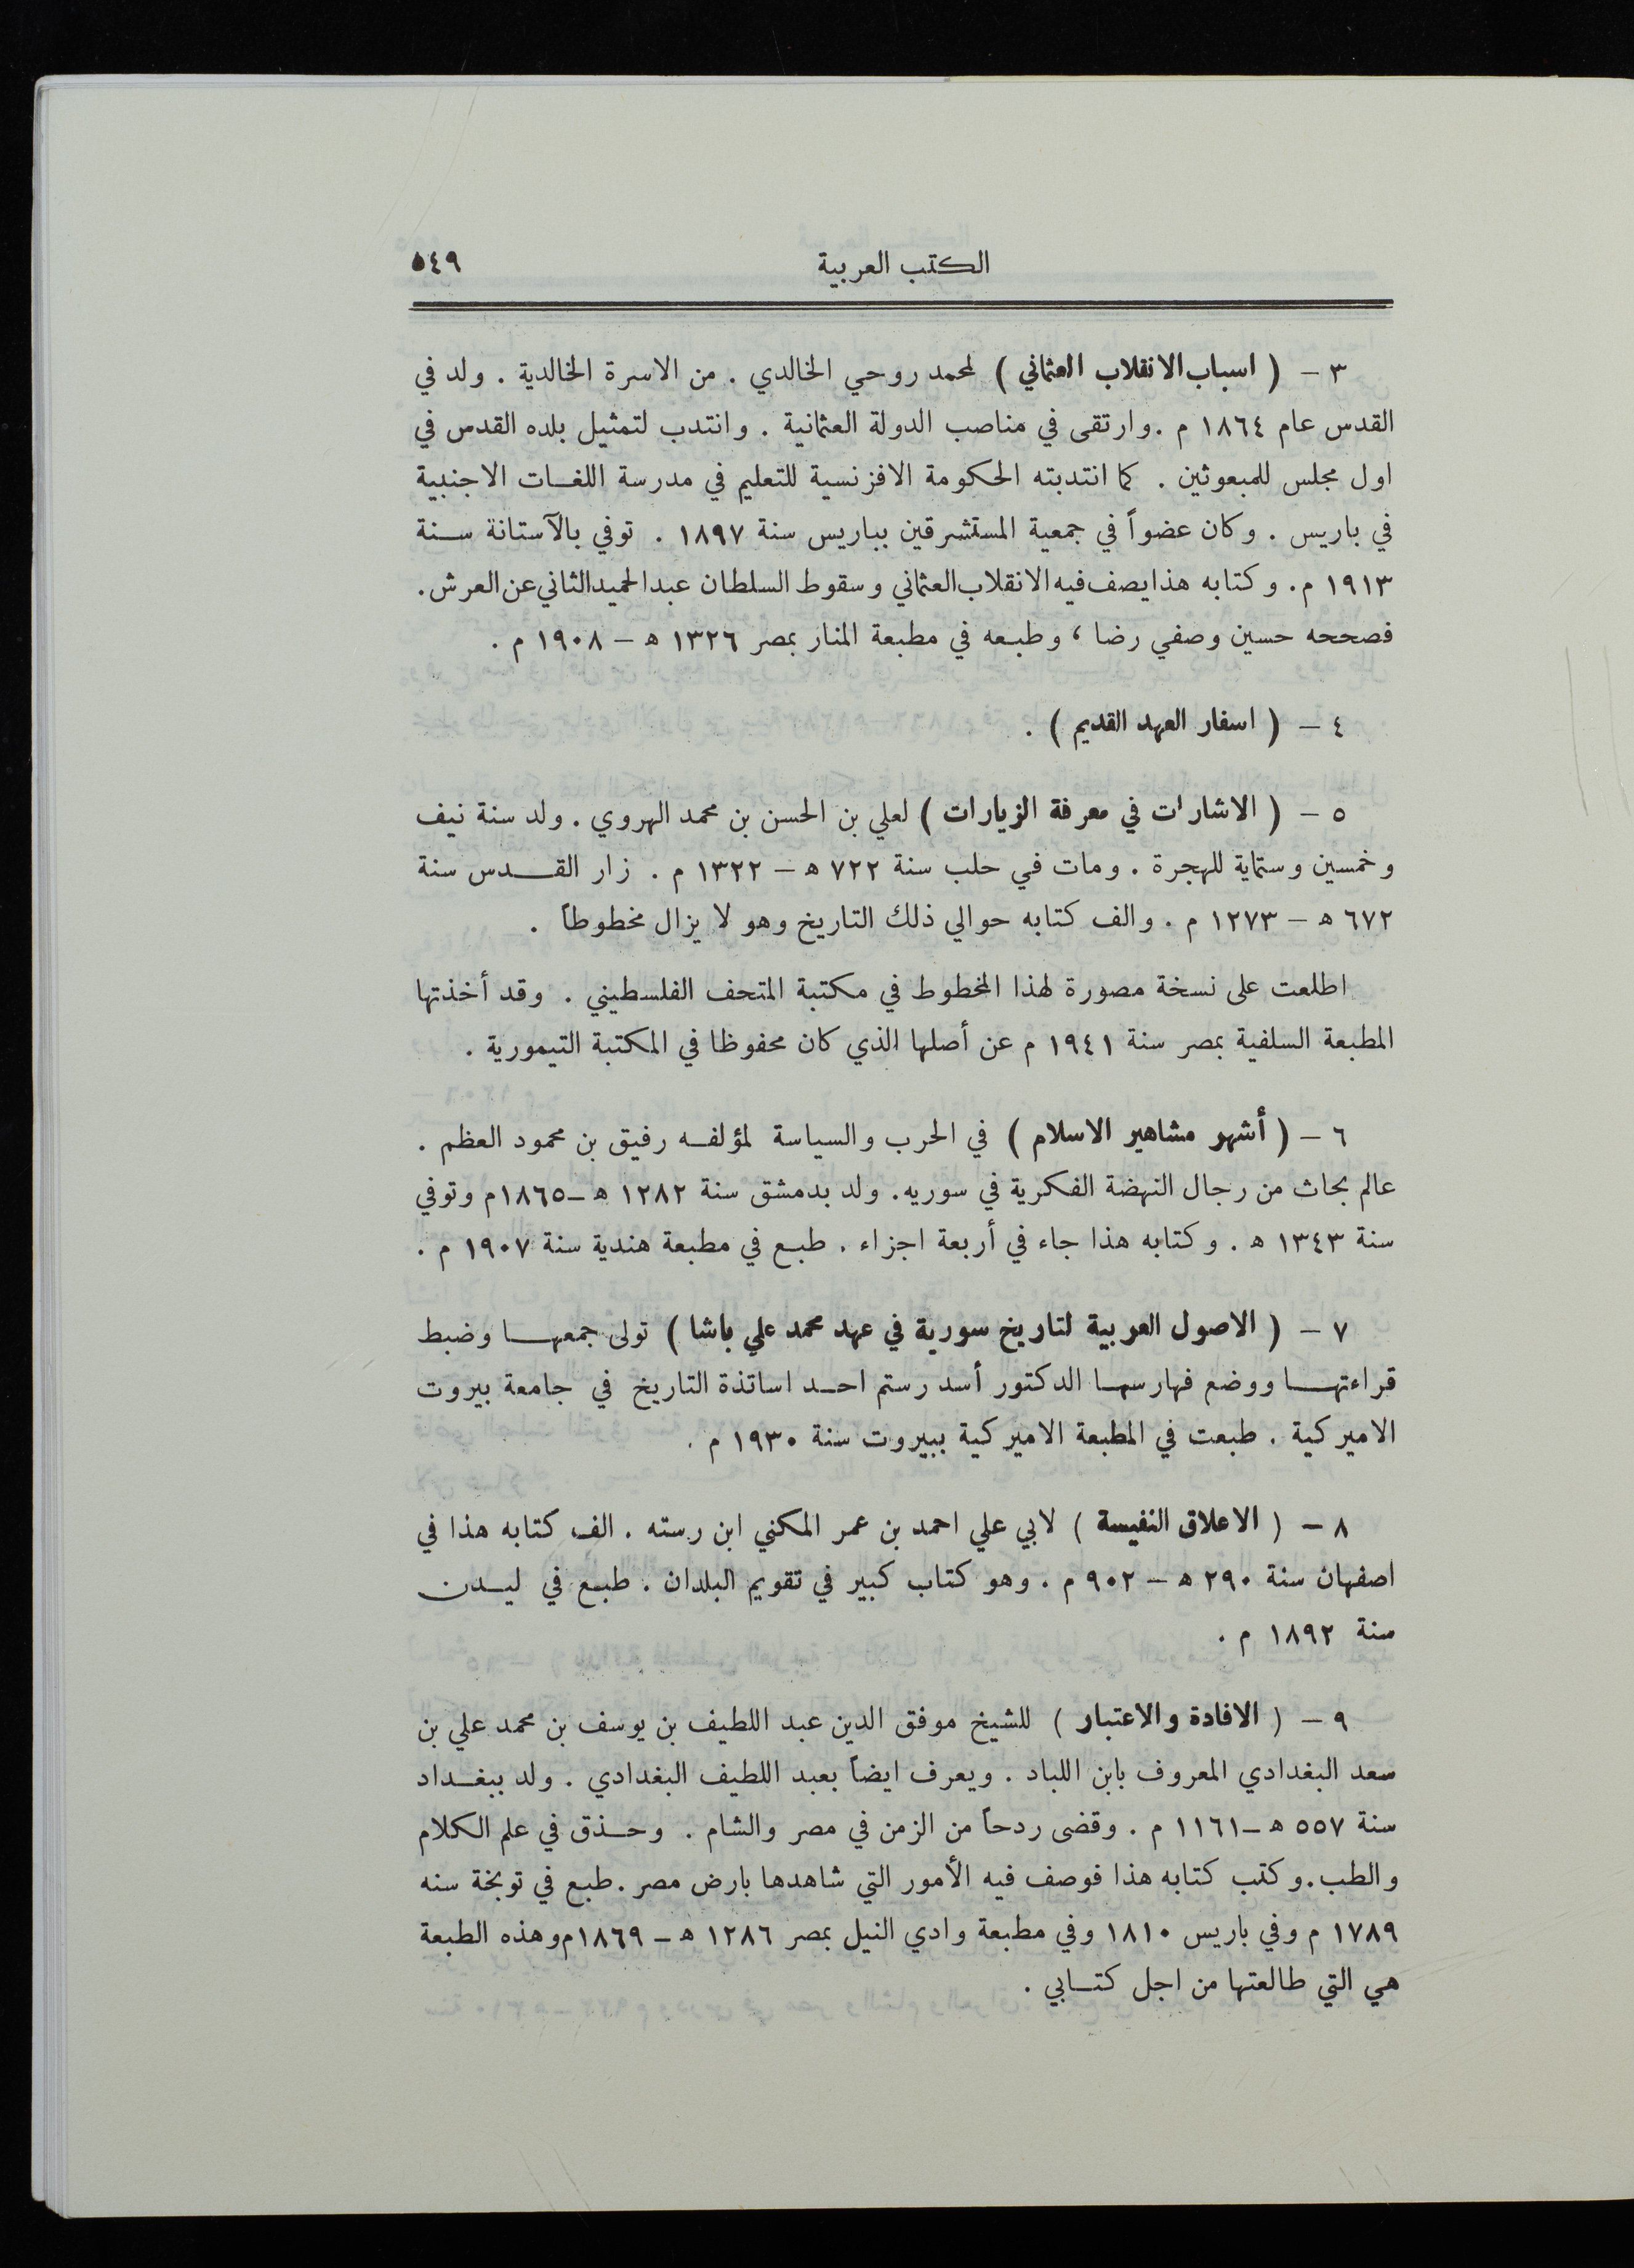 الكتب العربية ٥٤٩
٣ – ( اسباب الانقلاب العثماني ) لمحمد روحي الخالدي . من الاسرة الخالدية . ولد في
القدس عام ١٨٦٤ م . وارتقى في مناصب الدولة العثمانية . وانتدب لتمثيل بلده القدس في
اول مجلس للمبعوثين . كما انتدبته الحكومة الافرنسية للتعليم في مدرسة اللغات الاجنبية
في باريس . وكان عضواً في جمعية المستشرقين بباريس سنة ١٨٩٧ . توفي بالآستانة سنة
١٩١٣ م . وكتابه هذا يصف فيه الانقلاب العثماني وسقوط السلطان عبد الحميد الثاني عن العرش .
فصححه حسين وصفي رضا ، وطبعه في مطبعة المنار بمصر ١٣٢٦ ه – ١٩٠٨ م .
٤ – ( اسفار العهد القديم ) .
٥ – ( الاشارات في معرفة الزيارات ) لعلي بن الحسن بن محمد الهروي . ولد سنة نيف
وخمسين وستماية للهجرة . ومات في حلب سنة ٧٢٢ ه – ١٣٢٢ م . زار القدس سنة
٦٧٢ ه – ١٢٧٣ م . والف كتابه حوالي ذلك التاريخ وهو لا يزال مخطوطاً .
اطلعت على نسخة مصورة لهذا المخطوط في مكتبة المتحف الفلسطيني . وقد أخذتها
المطبعة السلفية بمصر سنة ١٩٤١ م عن أصلها الذي كان محفوظا في المكتبة التيمورية .
٦ – ( أشهر مشاهير الاسلام ) في الحرب والسياسة لمؤلفه رفيق بن محمود العظم .
عالم بحاث من رجال النهضة الفكرية في سوريه . ولد بدمشق سنة ١٢٨٢ ه – ١٨٦٥ م وتوفي
سنة ١٣٤٣ ه . وكتابه هذا جاء في أربعة اجزاء . طبع في مطبعة هندية سنة ١٩٠٧ م .
٧ – ( الاصول العربية لتاريخ سورية في عهد محمد علي باشا ) تولى جمعها وضبط
قراءتها ووضع فهارسها الدكتور أسد رستم احد اساتذة التاريخ في جامعة بيروت
الاميركية . طبعت في المطبعة الاميركية ببيروت سنة ١٩٣٠ م .
٨ – ( الاعلاق النفيسة ) لابي علي احمد بن عمر المكني ابن رسته . الف كتابه هذا في
اصفهان سنة ٢٩٠ ه – ٩٠٢ م . وهو كتاب كبير في تقويم البلدان . طبع في ليدن
سنة ١٨٩٢ م .
٩ – ( الافادة والاعتبار ) للشيخ موفق الدين عبد اللطيف بن يوسف بن محمد علي بن
سعد البغدادي المعروف بابن اللباد . ويعرف ايضاً بعبد اللطيف البغدادي . ولد ببغداد
سنة ٥٥٧ ه – ١١٦١ م . وقضى ردحاً من الزمن في مصر والشام . وحذق في علم الكلام
والطب . وكتب كتابه هذا فوصف فيه الأمور التي شاهدها بارض مصر . طبع في توبخة سنه
١٧٨٩ م وفي باريس ١٨١٠ وفي مطبعة وادي النيل بمصر ١٢٨٦ ه – ١٨٦٩ م وهذه الطبعة
هي التي طالعتها من اجل كتابي .